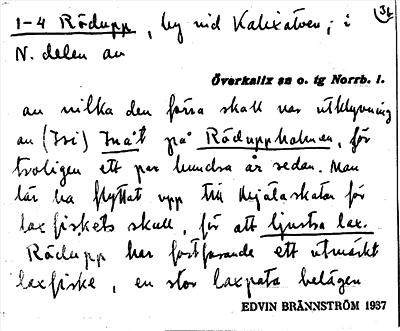 1-4 Rödupp, by vid Kalixälven, i
36
N. delen av
Överkalix sn o. tg Norrb. l.
av vilka den förra skall vara utklyvning
av (Isi) Inåt på Röduppholmen, för
troligen ett par hundra år sedan. Man
lär ha flyttat upp till Mjälaskatan för
laxfiskets skull, för att ljustra lax.
Rödupp har fortfarande ett utmärkt
laxfiske, en stor laxpata belägen
EDVIN BRÄNNSTRÖM 1937